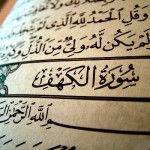 وَقُلِ الْحَمْدُ لِلَّهِ الَّذِي
لَمْ يَكُنْ لَهُ وَلِيٌّ مِنَ الذُّلِّ وَ
سُورَةُ الْكَهْفِ
اللَّهِ الرَّحْمَٰنِ